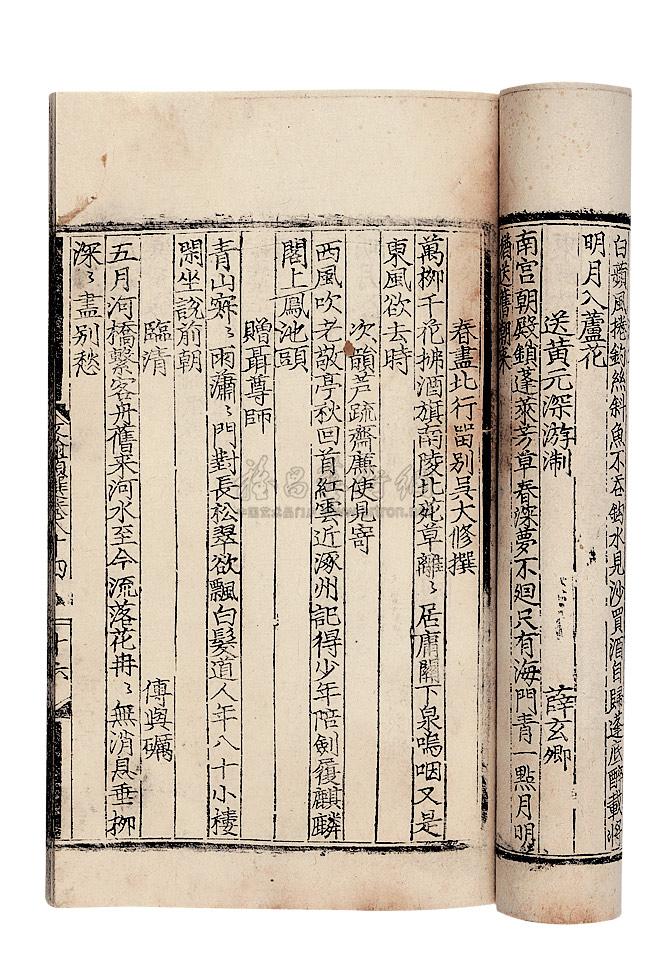 白蘋風捲釣絲斜魚不吞鈎水見沙買酒自歸蓬底醉載將
明月入蘆花
送黄元深游淛 薛玄卿
南宫朝殿鎖蓬萊芳草春深夢不廻只有海門青一點月明
猶送舊潮来
春盡北行留别吴大修撰
萬栁千花拂酒旗南陵北苑草離〻居庸關下泉嗚咽又是
東風欲去時
次韻芦疏齋亷使見寄
西風吹老敬亭秋回首紅雲近涿州記得少年陪劍履麒麟
閣上鳳池頭
贈聶尊師
青山寂〻雨瀟〻門對長松翠欲飄白髮道人年八十小樓
閑坐説前朝
臨清 傅與礪
五月河橋繫客舟舊来河水至今流落花冉〻無消息垂栁
深〻盡别愁
十六